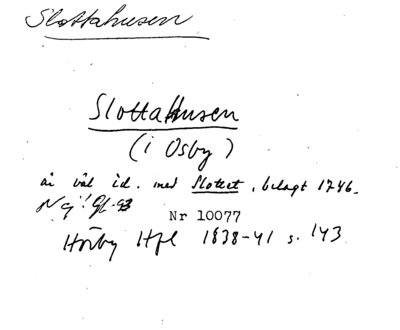 Slottahusen
Slottahusen
(i Osby)
är väl id. med Slottet, belagt 1746.
Nej! Gfl-93
Nr 10077
Hörby Hfl 1838-41 s. 143